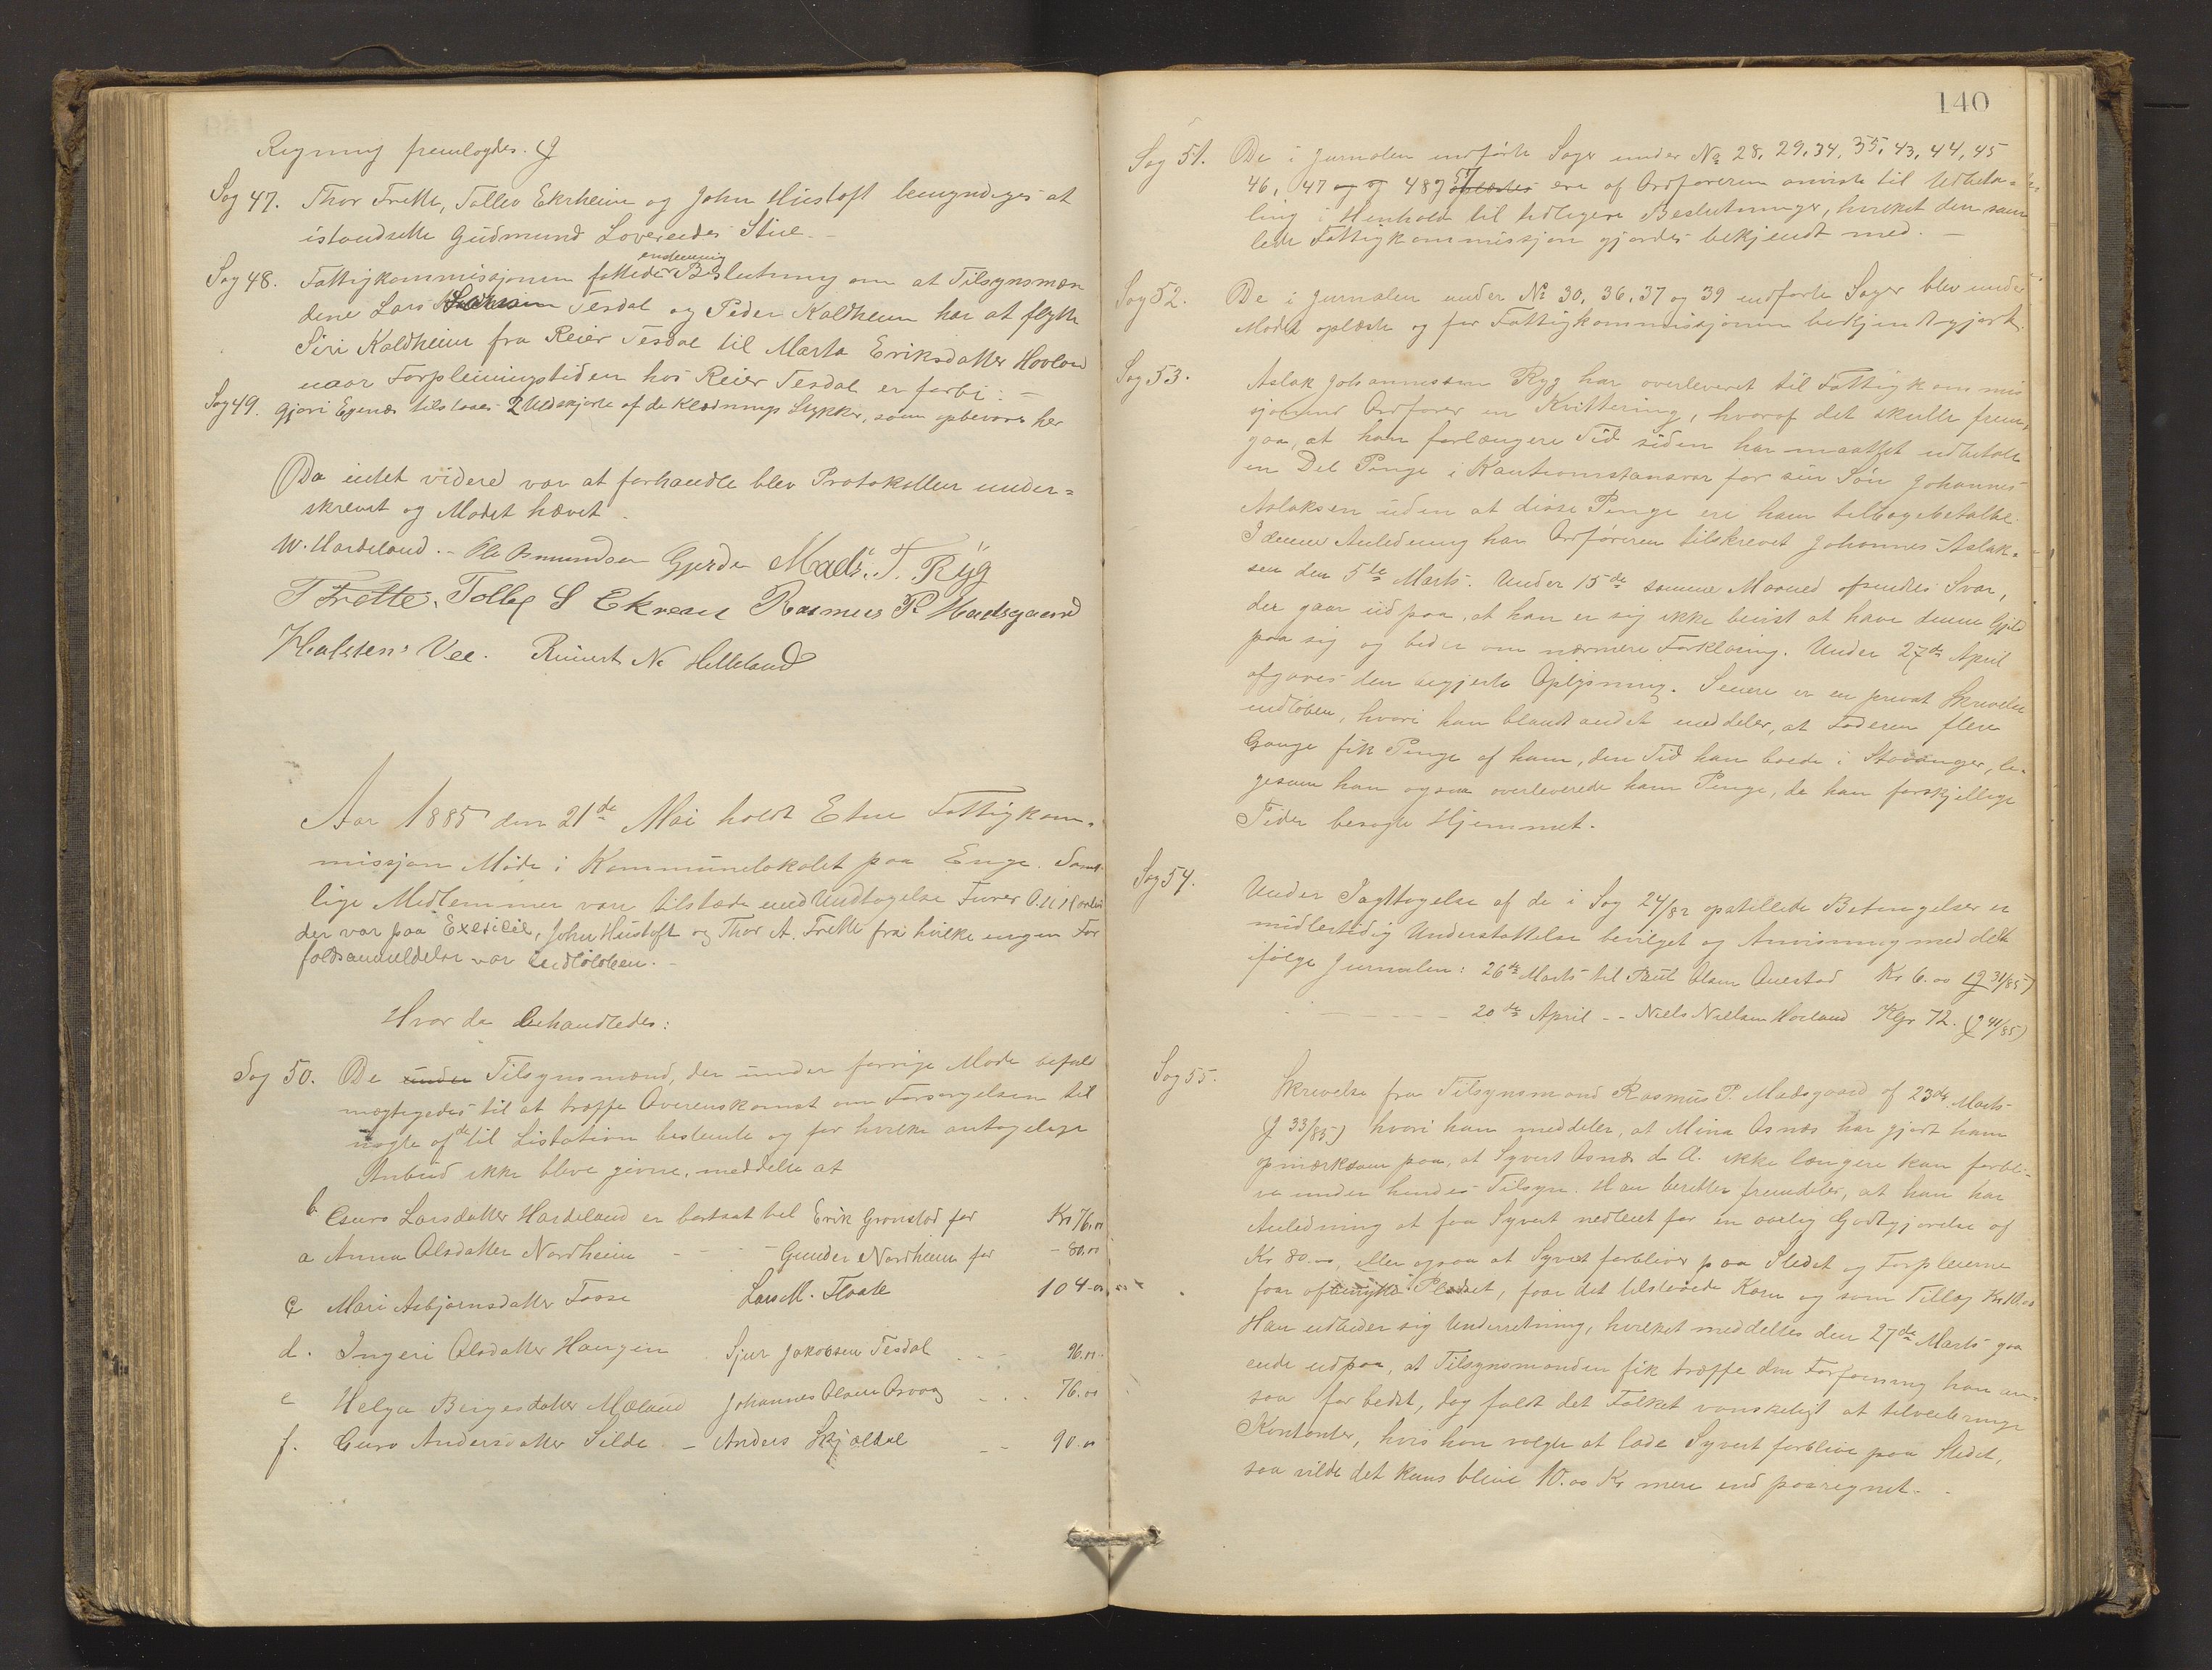 Regning fremlagdes.
Sag 47. Thor Frette, Tollev Ekrheim og John Hustoft bemyndiges at
istandsette Gudmund Lovereides Stue.
Sag 48. Fattigkommissjonen fattede enstemmig Beslutning om at Tilsynsmæn
dene Lars Tesdal og Peder Kaldheim har at flytte
Siri Kaldheim fra Reier Tesdal til Marta Eriksdatter Hovland
naar Forpleiningstiden hos Reier Tesdal er forbi. –
Sag 49. Gjøri Egenæs tilstaaes 2 Uldskjorte af de Klædnings Stykker, som opbevares her
Da intet videre var at forhandle blev Protokollen under=
skrevet og Mødet hævet.
W. Hardeland. – Ole Osmundsen Gjerde Mads. T. Ryg
T Frette. Tollef S Ekrem Rasmus P. Madsgaard
Halsten Vee. Reinert N. Helleland
Aar 1885 den 21de Mai holdt Etne Fattigkom-
missjon Møde i Kommunelokalet paa Enge. Samt-
lige Medlemmer vare tilstæde med Undtagelse Furer O.
der var paa Exercice, John Hustoft og Thor A. Frette fra hvilke ingen For
faldsanmeldelse var indløben. –
Hvor da behandledes:
Sag 50. De under Tilsynsmænd, der under forrige Møde befuld
mægtigedes til at træffe Overenskomst om Forsørgelsen til
nogle af de til Listation bestemte og for hvilke antagelige
Anbud ikke bleve givne, meddelte at
b Guro Larsdatter Hardeland er bortsat til Erik Grønstad for Kr 76.00
a Anna Olsdatter Nordheim - - - Gunder Nordheim for - 80.00
c Mari Asbjørnsdatter Fosse Lars M. Flaate 104.00
d. Ingeri Olsdatter Haugen Sjur Jakobsen Tesdal - - 96.00
e Helga Birgesdatter Mæland Johannes Olsen Osvaag - - 76.00
f. Guro Andersdatter Silde – Anders Skjældal - - 90.00
140
Sag 51. De i Jurnalen indførte Sager under No 28, 29, 34, 35, 43, 44, 45
46, 47 og og 48 og 57 oplæstes ere af Ordføreren anviste til Udbeta=
ling i Henhold til tidligere Beslutninger, hvilket den sam
lede Fattigkommissjon gjordes bekjendt med. –
Sag 52. De i Jurnalen under No 30, 36, 37 og 39 indførte Sager blev under
Mødet oplæste og for Fattigkommissjonen bekjendtgjort.
Sag 53. Aslak Johannessen Ryg har overleveret til Fattigkommis
sjonens Ordfører en Kvittering, hvoraf det skulle frem,
gaa, at han forlængere Tid siden har maattet udbetale
en Del Penge i Kautionsansvar for sin Søn Johannes
Aslaksen uden at disse Penge ere ham tilbagebetalte.
I denne Anledning har Ordføreren tilskrevet Johannes Aslak-
sen den 5te Marts. Under 15de samme Maaned afsendtes Svar,
der gaar ud paa, at han er sig ikke bevist at have denne Gjeld
paa sig og beder om nærmere Forklaring. Under 27de April
afgaves den begjerte Oplysning. Senere er en privat Skrivelse
indløben, hvori han blandt andet meddeler, at Faderen flere
Gange fik Penge af ham, den Tid han boede i Stavanger, li-
gesom han ogsaa overleverede ham Penge, da han forskjellige
Tider besøgte Hjemmet.
Sag 54. Under Iagttagelse af de i Sag 24/82 opstillede Betingelser er
midlertidig Understøttelse bevilget og Anvisning meddelt
ifølge Jurnalen: 26de Marts til Olsen Kr 6.00 (J 31/85)
- - - - 20de April - - Niels Nielsen Hovland Kgr 72. (J 41/85)
Sag 55. Skrivelse fra Tilsynsmand Rasmus P. Madsgaard af 23de Marts
(J 33/85) hvori han meddeler, at Mina Osnæs har gjort ham
opmærksom paa, at Syvert Osnæs d. A. ikke længere kan forbli-
ve under hendes Tilsyn. Han beretter fremdeles, at han har
Anledning at faa Syvert nedleiet for en aarlig Godtgjørelse af
Kr 80.00, eller ogsaa at Syvert forbliver paa Stedet og Forpleierne
faar afbenytte Pladset, faar det tilstaaede Korn og som Tillæg Kr 10.00
Han udbeder sig Underretning, hvilket meddeltes den 27de Marts gaa
ende ud paa, at Tilsynsmanden fik træffe den Forføining han an=
saa for bedst, dog faldt det Folket vanskeligt at tilveiebringe
Kontanter, hvis han valgte at lade Syvert forblive paa Stedet,
saa vilde det kuns blive 10.00 Kr mere end paaregnet. -